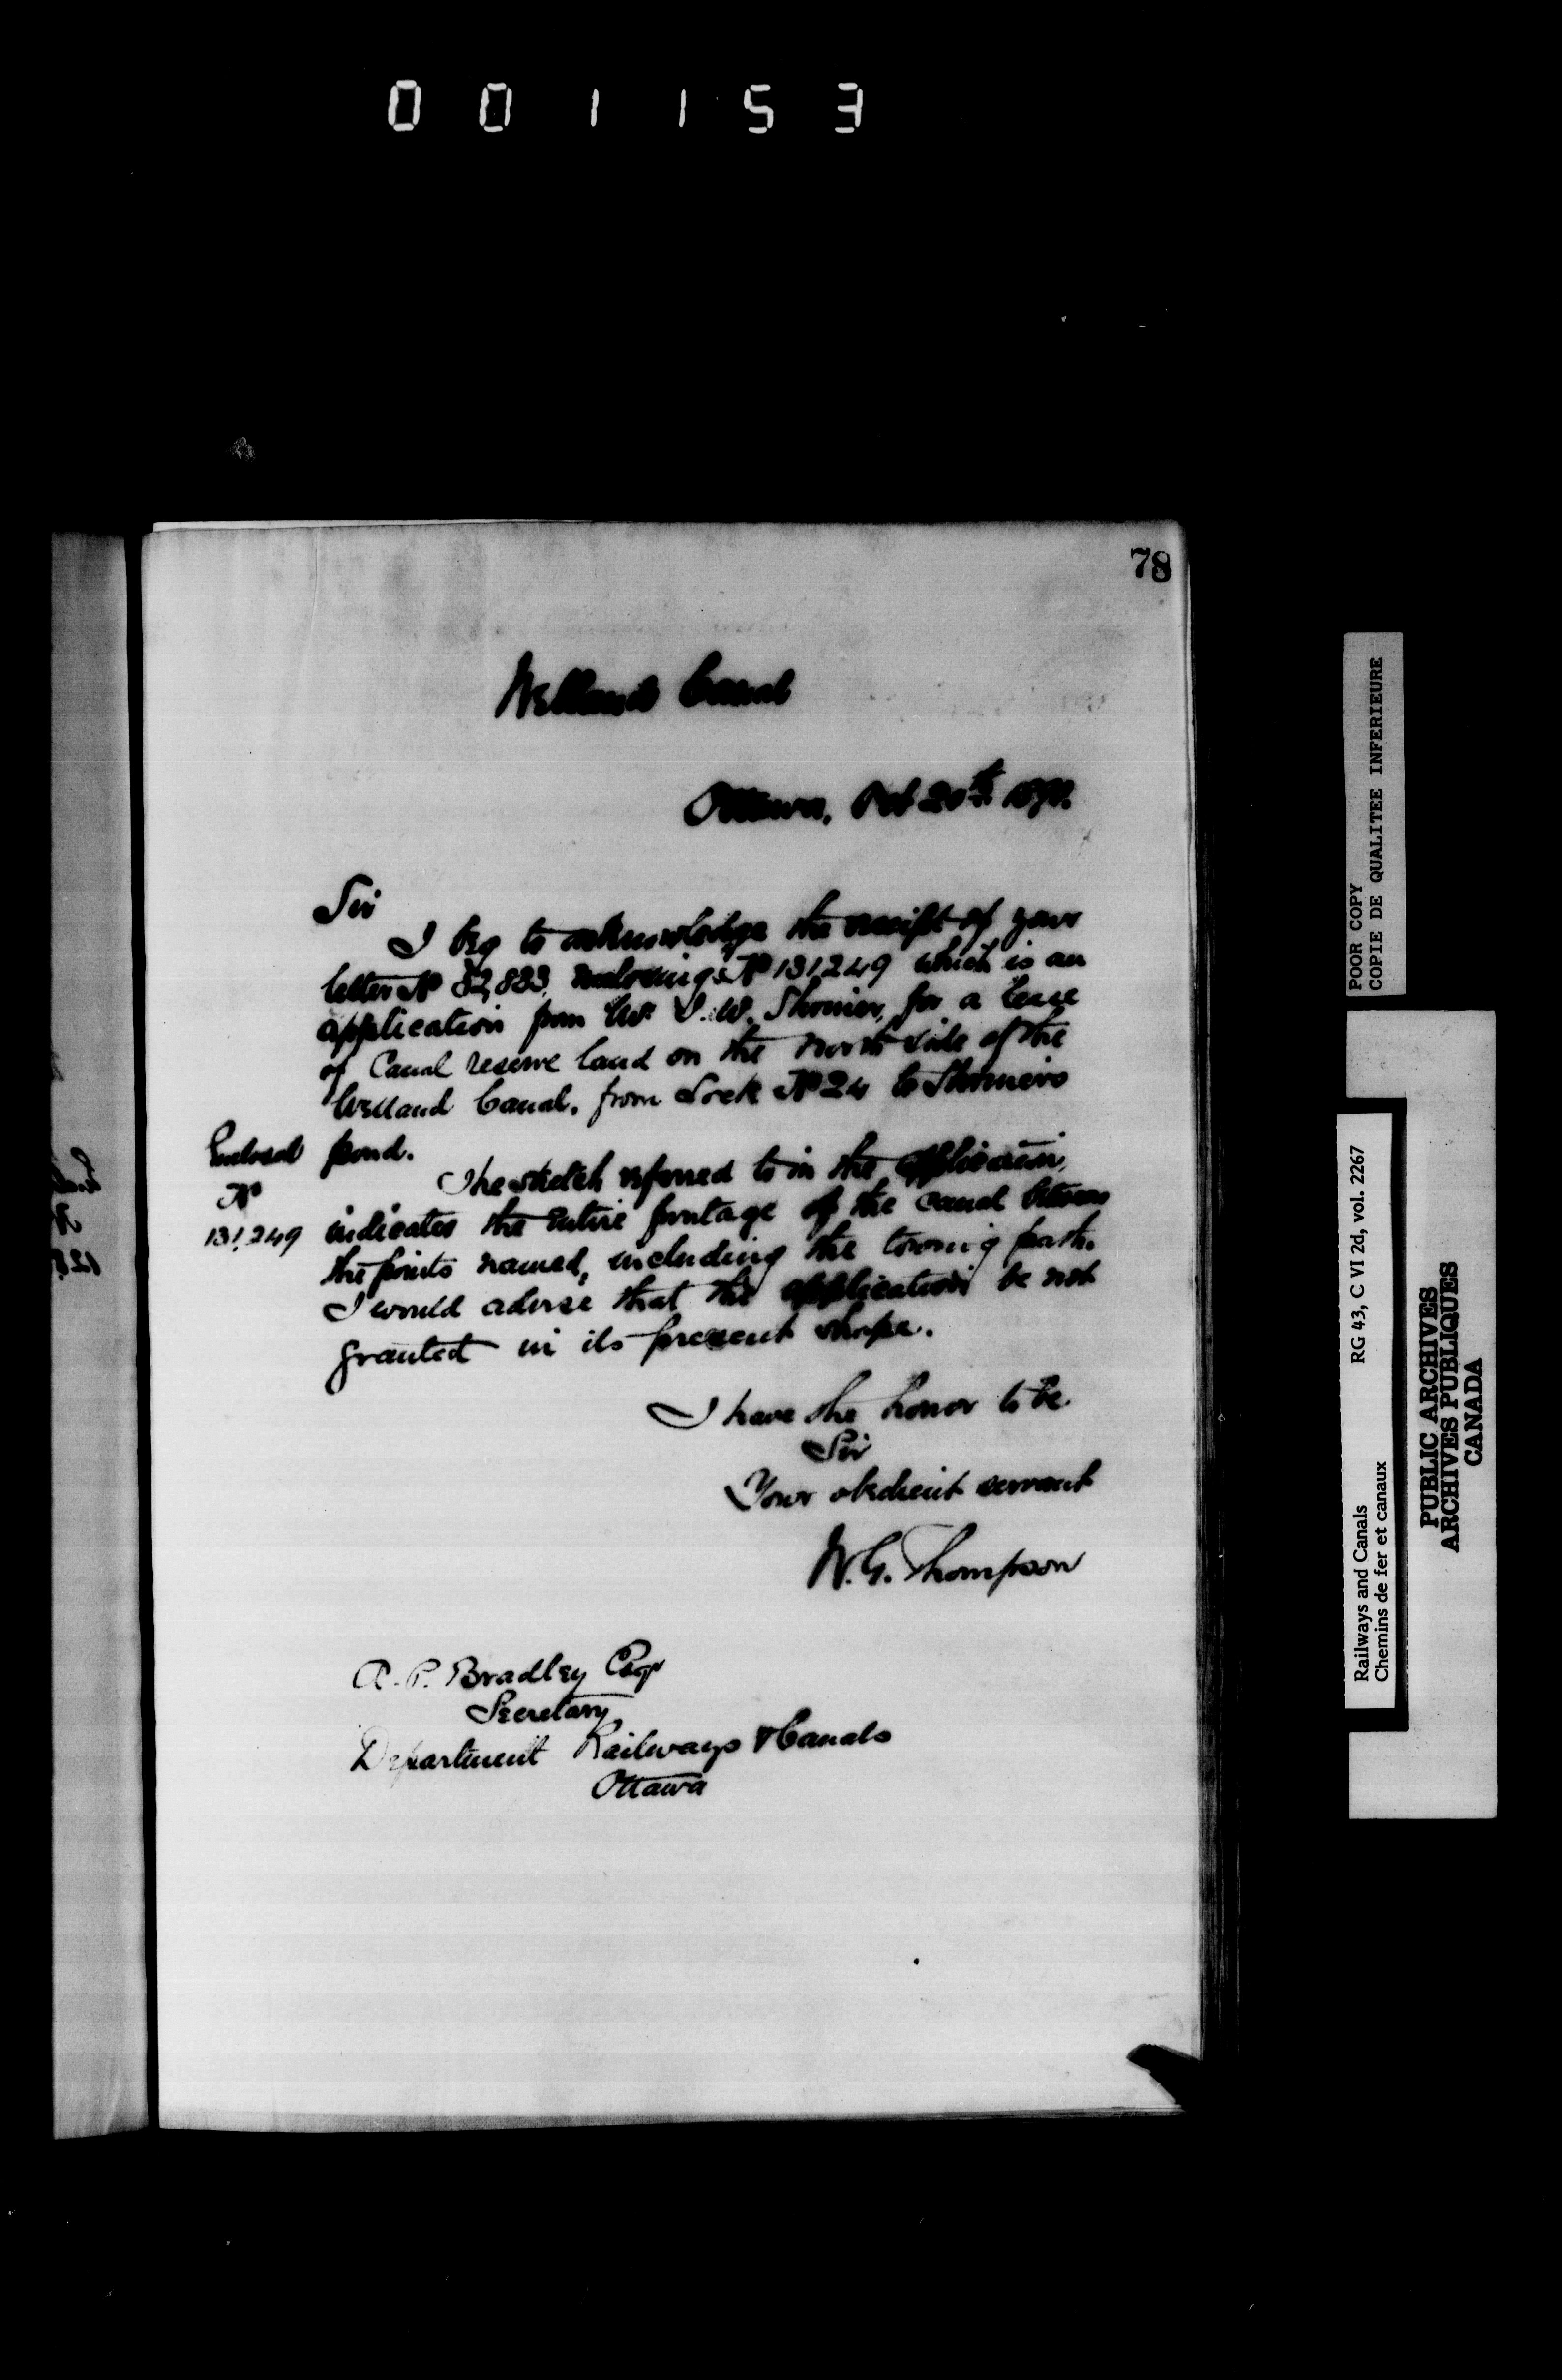 001153
78
Welland Canal
Ottawa, Oct 20th 1891.
Sir
I beg to acknowledge the receipt of your
letter No 82,883, enclosing No 131,249 which is an
application from Mr. W. Shriner, for a lease
of Canal reserve land on the North side of the
Welland Canal, from Lock No 24 to Shriners
pond.
Enclosed
No
131,249
The sketch referred to in the application,
indicates the entire frontage of the canal between
the points named, including the towing path.
I would advise that the application be not
granted in its present shape.
I have the honor to be
Sir
Your obedient servant
W.G. Thompson
A.P. Bradley Esqr
Secretary
Department Railways & Canals
Ottawa
POOR COPY
COPIE DE QUALITEE INFERIEURE
Railways and Canals RG 43, C VI 2d, vol. 2267
Chemins de fer et canaux
PUBLIC ARCHIVES
ARCHIVES PUBLIQUES
CANADA